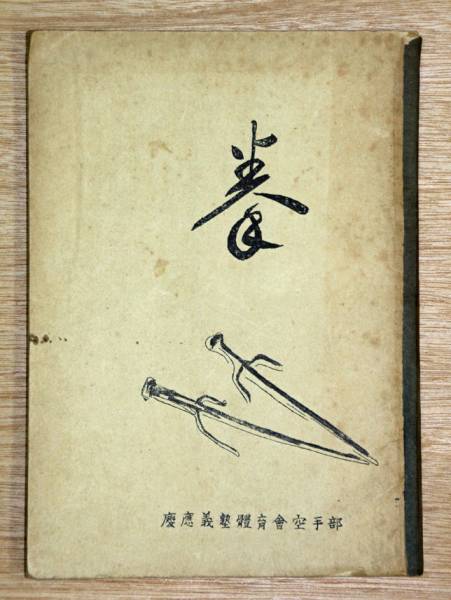 拳
慶應義塾體育會空手部